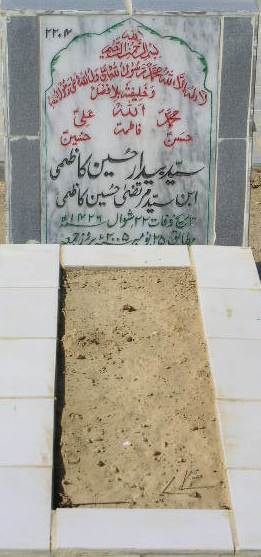 ۲۲۰۴
بسم الله الرحمن الرحیم
لا اله الا الله محمد رسول الله علی ولی الله وصی رسول الله
وخلیفته بلا فصل
محمد الله علی
حسن فاطمہ حسین
سید بیدار حسین کاظمی
ابن سید مرتضیٰ حسین کاظمی
تاریخ وفات ۲۲ شوال ۱۴۲۶ھ
مطابق ۲۵ نومبر ۲۰۰۵ بروز جمعہ